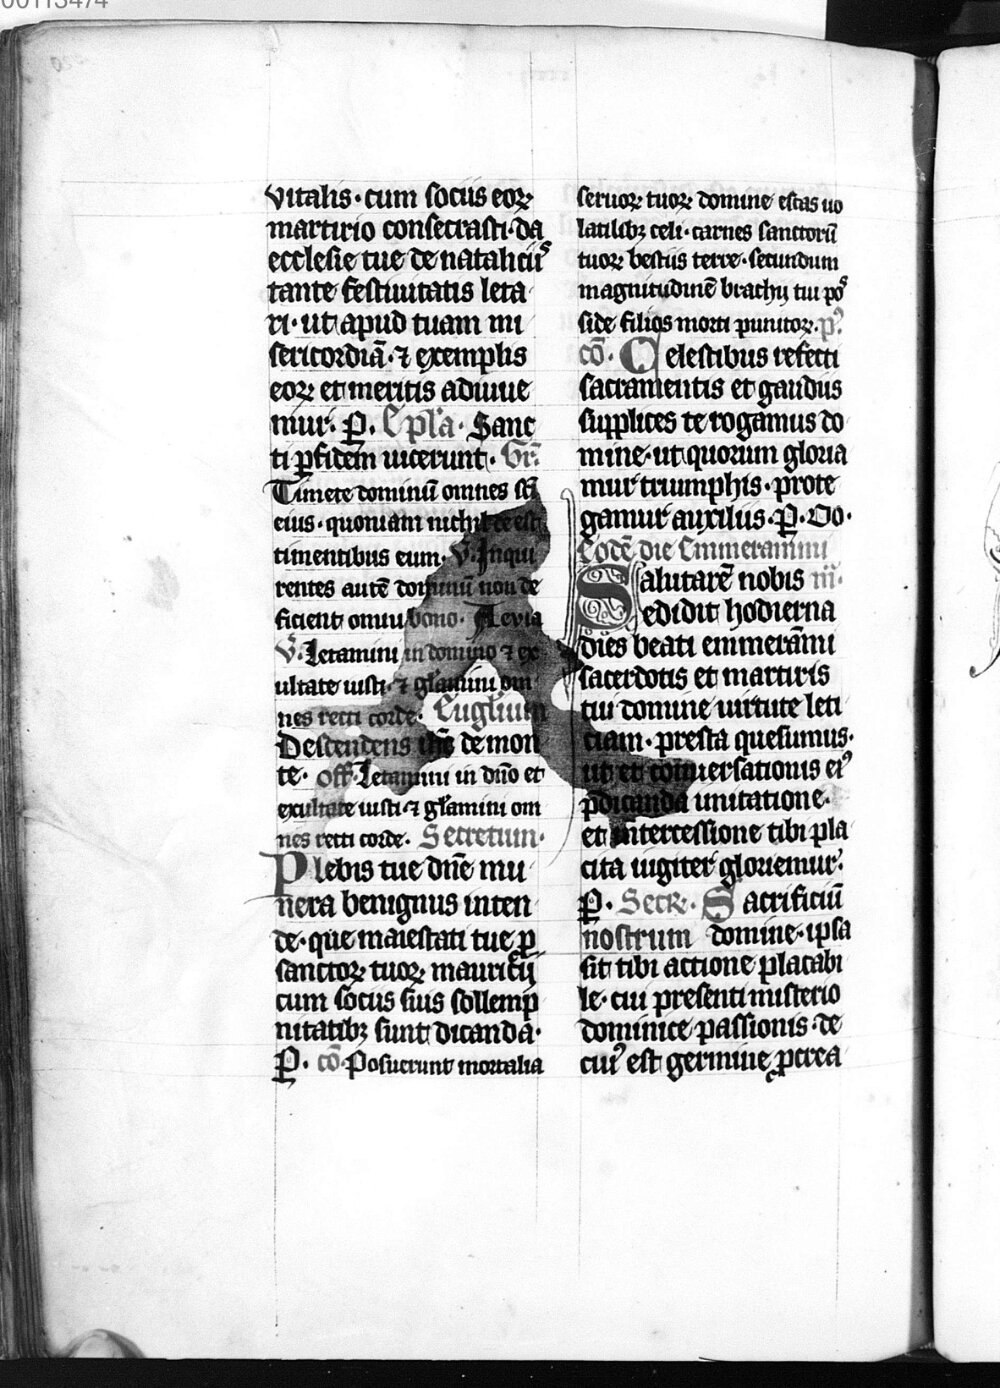 00113474
vitalis · cum sociis eoꝝ
martirio consecrasti · da
ecclesie tue de natalicijˢ
tante festiuitatis leta
ri · ut apud tuam mi
sericordiā · ⁊ exemplis
eoꝝ et meritis adiuue
mur · P̱ . Ep̄la · Sanc
ti ꝑ fidem uicerunt · Gr̄ .
Timete dominū omnes sc̄i
eius · quoniam nichil de est
timentibus eum · V . Inqui
rentes autē dominū non de
ficient omni bono · Alevia
V . Letamini in domino ⁊ ex
ultate iusti · ⁊ gl̄amini om
nes recti corde · Euglium
Descendens ih̄s de mon
te · off̄ . Letamini in dn̄o et
exultate iusti ⁊ gl̄amini om
nes recti corde . Secretum ·
Plebis tue dn̄e mu
nera benignus inten
de · que maiestati tue ꝑ
sanctoꝝ tuoꝝ mauricij
cum sociis suis sollemp
nitatibꝫ sunt dicanda ·
P̱ . cō . Posuerunt mortalia
seruoꝝ tuoꝝ domine escas uo
latilibꝫ celi · carnes sanctorū
tuoꝝ bestiis terre · secundum
magnitudinē brachij tui posˢ
side filios morti punitoꝝ . p̱ˀ
cō · Celestibus refecti
sacramentis et gaudiis
supplices te rogamus do
mine · ut quorum gloria
mur triumphis · prote
gamur auxiliis · P̱ . Oo ·
Eodē die Emmerammi
Salutarē nobis m̄ ·
edidit hodierna
dies beati emmerāmi
sacerdotis et martiris
tui domine uirtute leti
ciam · presta quesumus ·
ut et conuersationis eiꝰ
p̄dicanda imitatione ·
et intercessione tibi pla
cita iugiter gloriemur ·
P̱ . Secꝶ . Sacrificiū
nostrum domine · ipsa
sit tibi actione placabi
le · cui presenti misterio
dominice passionis · de
cuiꝰ est germine ꝑcrea